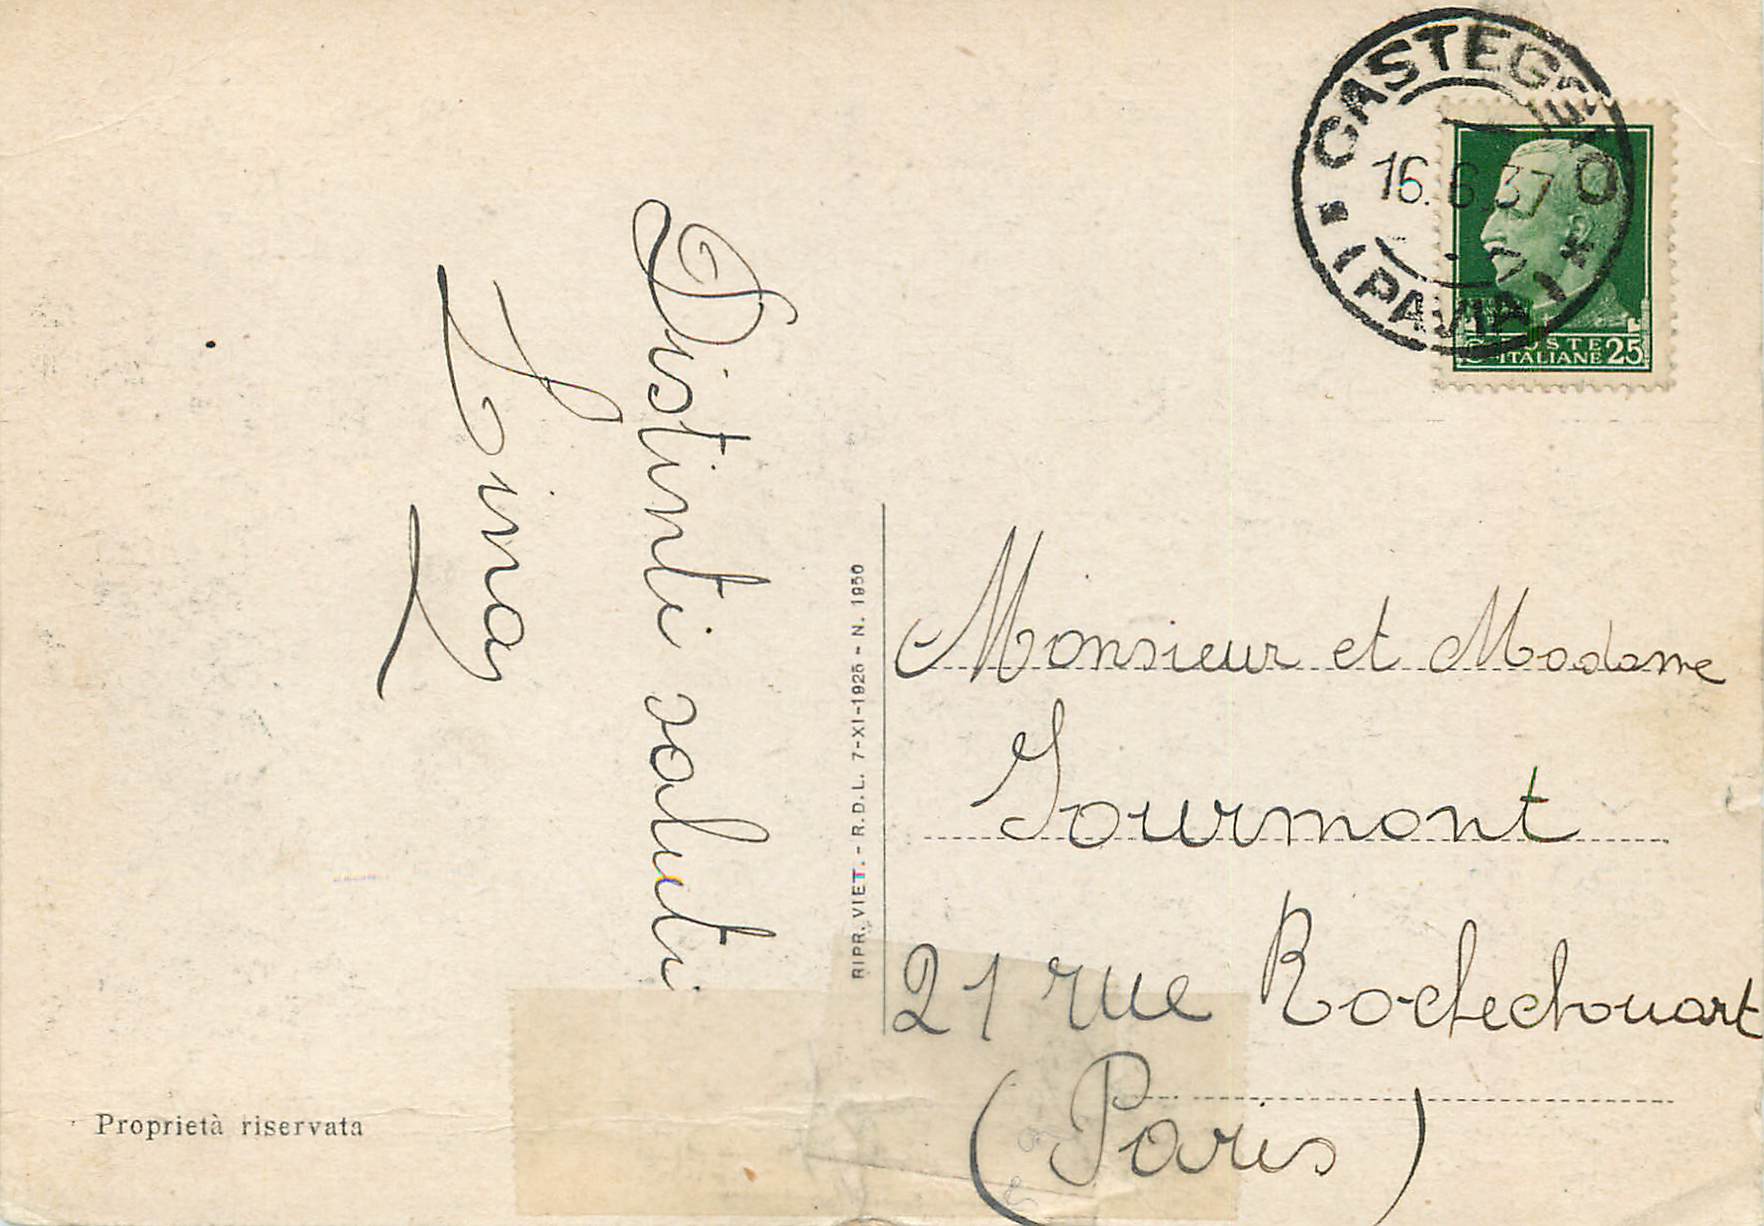 CASTEGGIO
16.6.37
(PAVIA)
POSTE
ITALIANE 25
Distinti saluti
Lina
RIPR. VIET. - R.D.L. 7-XI-1925 - N. 1950
Monsieur et Madame
Jourmont
21 rue Rochechouart
(Paris)
Proprietà riservata